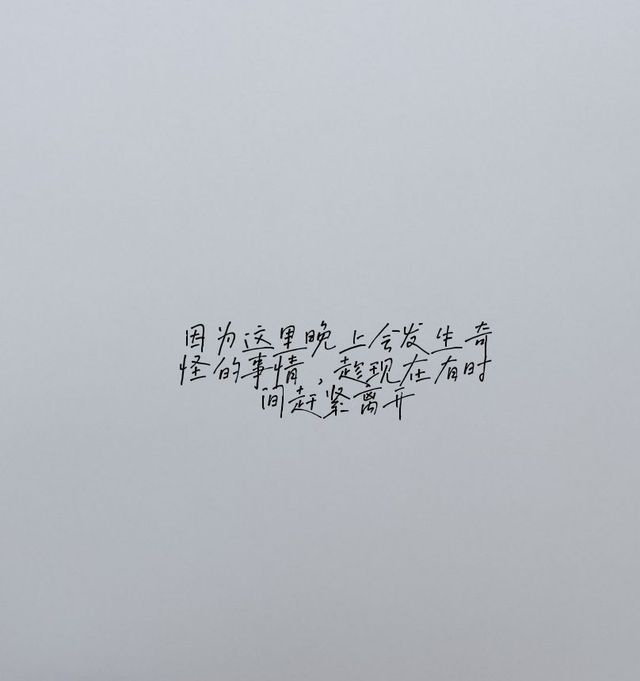 因为这里晚上会发生奇
怪的事情，趁现在有时
间赶紧离开